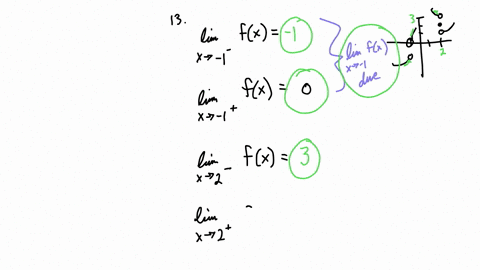 13.
lim x→-1⁻ f(x) = -1
lim x→-1⁺ f(x) = 0
lim x→-1 f(x) dne
lim x→2⁻ f(x) = 3
lim x→2⁺
3
2